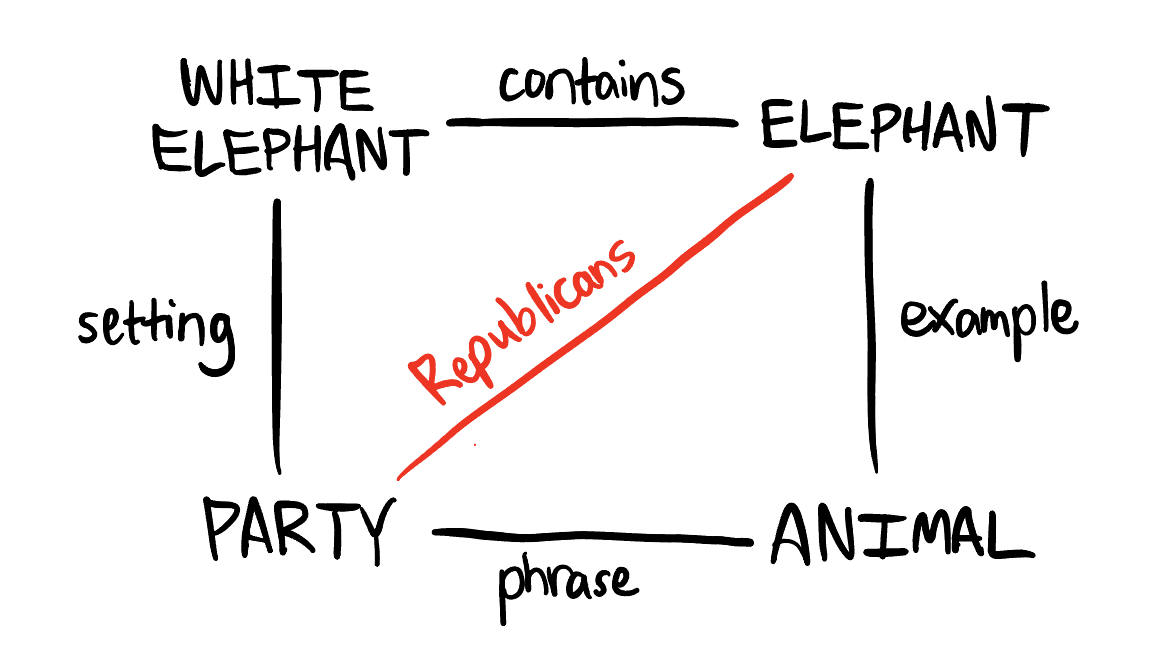 WHITE
ELEPHANT
contains
ELEPHANT
Republicans
setting
example
PARTY
phrase
ANIMAL